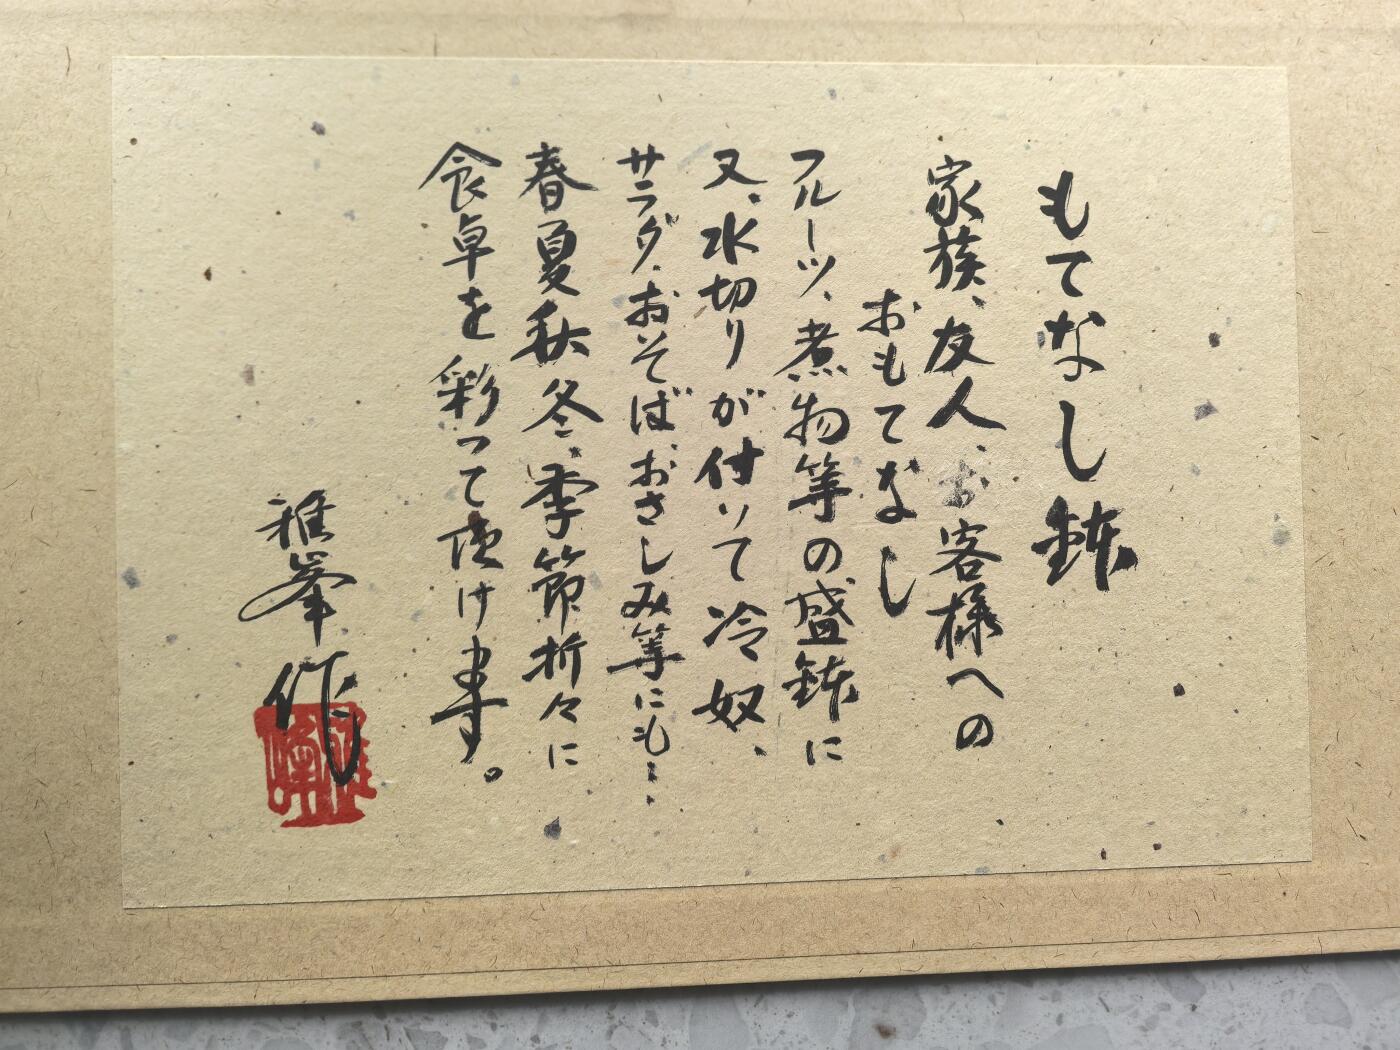 もてなし鉢
家族、友人、お客様への
おもてなし
フルーツ、煮物等の盛鉢に
又、水切りが付いて冷奴、
サラダ、おそば、おさしみ等にも…
春夏秋冬、季節折々に
食卓を彩って頂けます。
雅峯作
雅峯